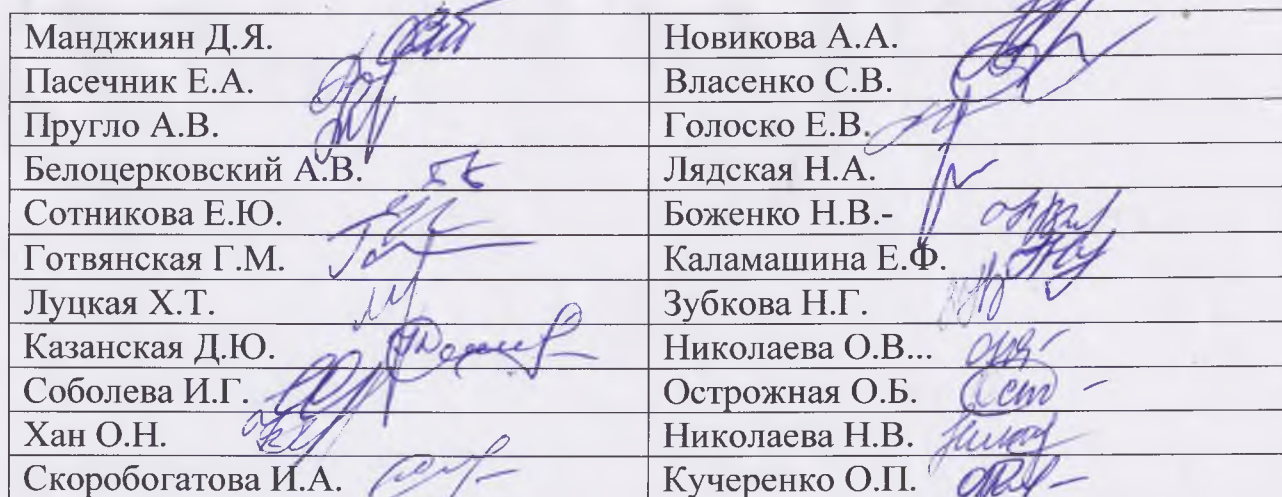 Манджиян Д.Я.
Новикова А.А.
Пасечник Е.А.
Власенко С.В.
Пругло А.В.
Голоско Е.В.
Белоцерковский А.В.
Лядская Н.А.
Сотникова Е.Ю.
Боженко Н.В.-
Готвянская Г.М.
Каламашина Е.Ф.
Луцкая Х.Т.
Зубкова Н.Г.
Казанская Д.Ю.
Николаева О.В...
Соболева И.Г.
Острожная О.Б.
Хан О.Н.
Николаева Н.В.
Скоробогатова И.А.
Кучеренко О.П.